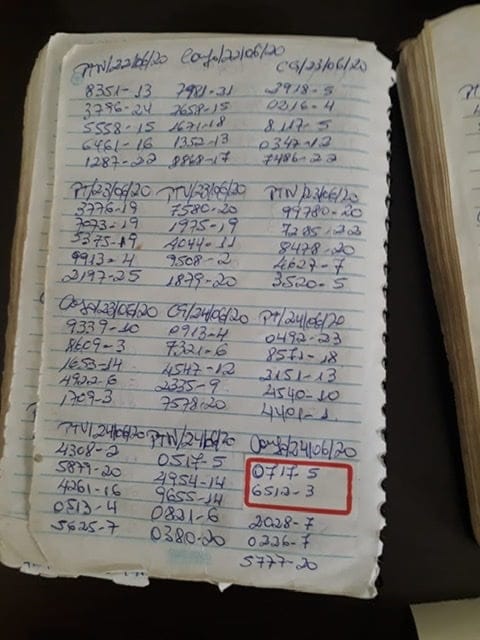 PTN/22/06/20
8351-13
3796-24
5558-15
6461-16
1287-22
Coruja/22/06/20
7981-21
2658-15
1671-18
1352-13
8868-17
CG/23/06/20
2918-5
0216-4
8117-5
0347-12
7486-22
PT/23/06/20
3776-19
7073-19
5375-19
9913-4
2197-25
PTV/23/06/20
7580-20
1975-19
4044-11
9508-2
1879-20
PTN/23/06/20
7285-22
8478-20
4627-7
3520-5
Coruja/23/06/20
9339-10
8609-3
1653-14
4922-6
1709-3
CG/24/06/20
0913-4
7321-6
4547-12
2335-9
7578-20
PT/24/06/20
0492-23
8571-18
3151-13
4540-10
4401-1
PTV/24/06/20
4308-2
5879-20
4261-16
0513-4
5625-7
PTN/24/06/20
0517-5
4954-14
9655-14
0821-6
0380-20
Coruja/24/06/20
0717-5
6512-3
2028-7
0226-7
5777-20